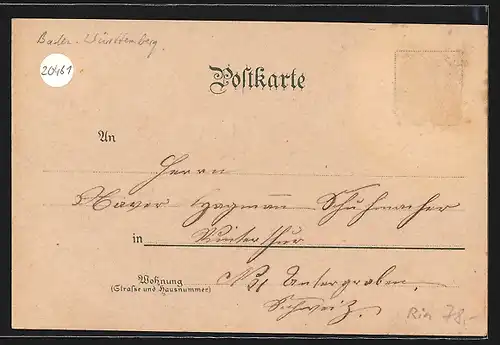 Baden-Württemberg
20461
Postkarte
An
Herrn
Xaver Hagmann Schuhmacher
in Winterthur
Wohnung
(Straße und Hausnummer)
No 21 Untergraben.
Schweiz.
78,-